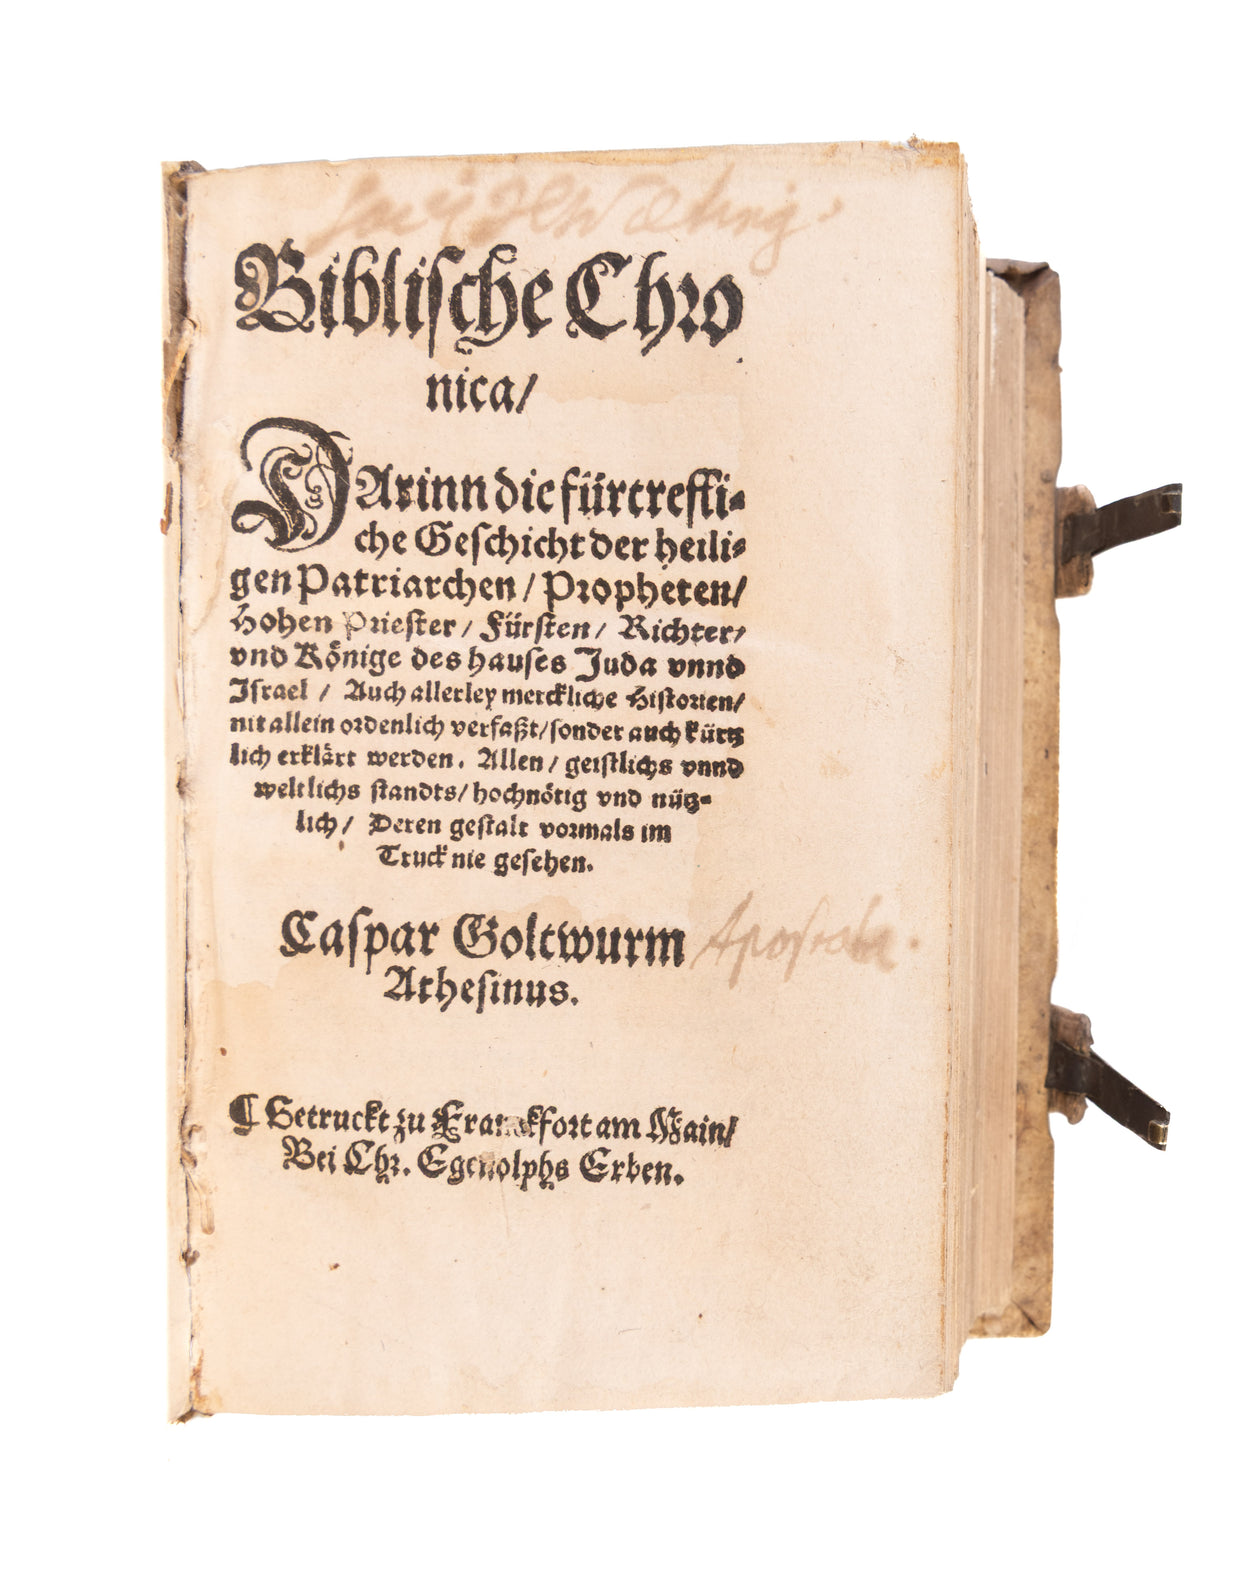 Biblische Chro
nica/
DArinn die fürtreffli-
che Geschicht der heili-
gen Patriarchen / Propheten/
Hohen Priester / Fürsten / Richter/
vnd Könige des hauses Juda vnnd
Israel / Auch allerley merckliche Historien/
nit allein ordenlich verfaßt/sonder auch kürtz
lich erklärt werden. Allen / geistlichs vnnd
weltlichs standts/ hochnötig vnd nütz-
lich / Deren gestalt vormals im
Truck nie gesehen.
Caspar Goltwurm Apostata.
Athesinus.
Getruckt zu Franckfort am Main/
Bei Chr. Egenolphs Erben.